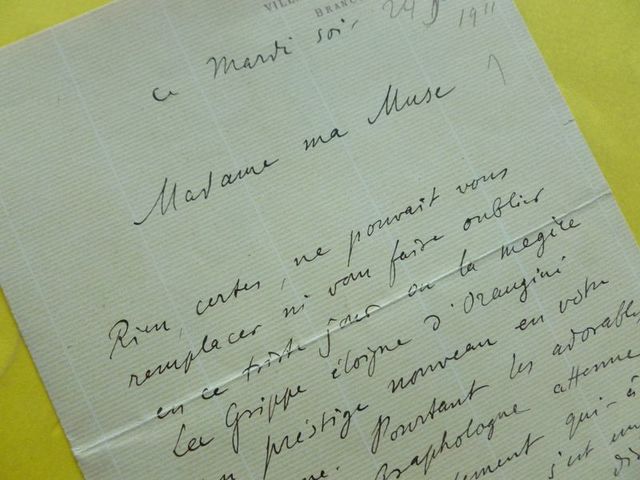 VILL
BRANC
ce Mardi soir 24 1911
Madame ma Muse
Rien, certes, ne pouvait vous
remplacer ni vous faire oublier
en ce triste jour où la
La Grippe éloigne d'Orangini
prestige nouveau en votre
Pourtant les adorable
Graphologue
lement qui-à
s'est un